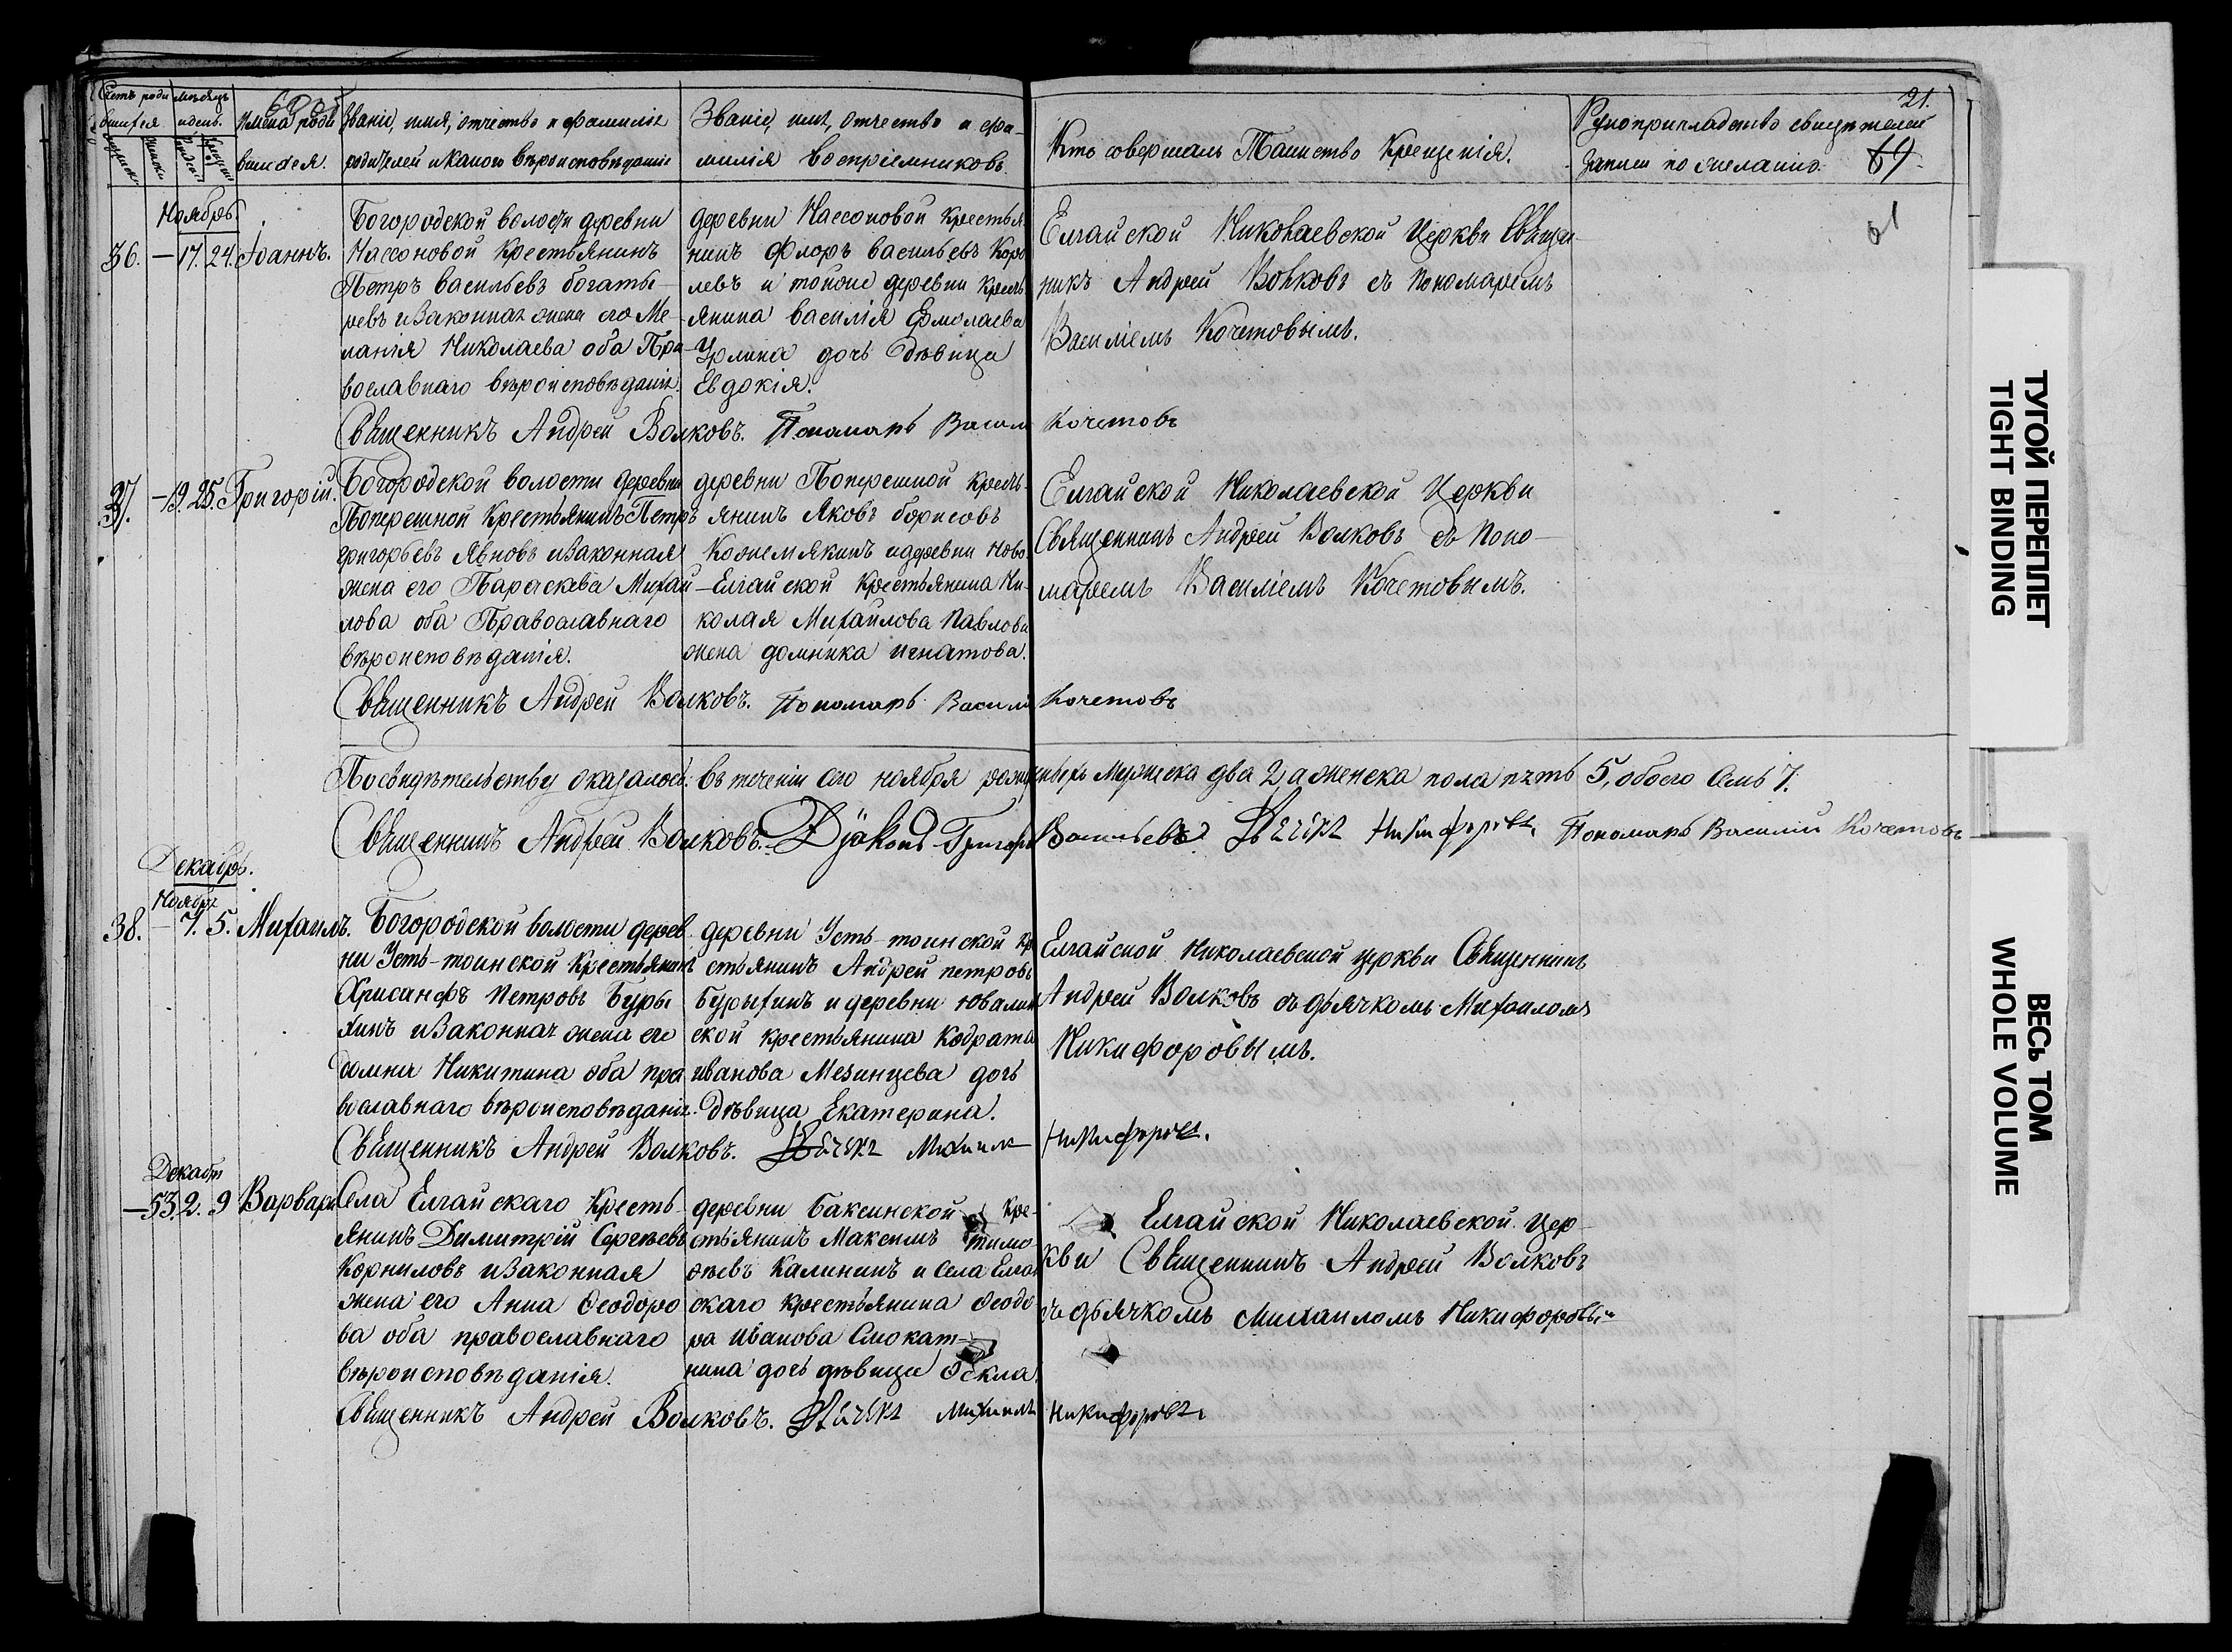 Счетъ роди
вшихся
мѣсяцъ
и день.
Имена роди
вшихся.
Званіе, имя, отчество и фамилія
родителей и какого вѣроисповѣданія
Званіе, имя, отчество и фа-
милія воспріемниковъ.
Кто совершалъ Таинство Крещенія.
Рукоприкладство свидѣтелей
записи по желанію.
21.
69
61
Ноябрь.
36. — 17. 24. Іоаннъ.
Богородской волости деревни
Нассоновой Крестьянинъ
Петръ Васильевъ Богаты-
ревъ и Законная жена его Ме-
ланія Николаева оба Пра-
вославнаго вѣроисповѣданія.
деревни Нассоновой Крестья
нинъ Флоръ Васильевъ Коро
левъ и тойже деревни Кресть
янина Василія Ермолаева
дочь дѣвица
Евдокія.
Елгайской Николаевской Церкви Свяще
никъ Андрей Волковъ съ Пономаремъ
Василіемъ Кочетовымъ.
Священникъ Андрей Волковъ. Пономарь Васил Кочетовъ
37. — 19. 25. Григорій.
Богородской волости деревни
Поперешной Крестьянинъ Петръ
Григорьевъ и Законная
жена его Параскева Михай
лова оба Православнаго
вѣроисповѣданія.
деревни Поперешной Кресть-
янинъ Яковъ Борисовъ
Кожемякинъ и деревни Ново
—Елгайской Крестьянина Ни-
колая Михайлова Павлова
жена Домника Игнатова.
Елгайской Николаевской Церкви
Священникъ Андрей Волковъ съ Поно-
маремъ Василіемъ Кочетовымъ.
Священникъ Андрей Волковъ. Пономарь Василій Кочетовъ
Посвидѣтельству оказалось: въ теченіи сего ноября мужеска два 2, а женска пола пять 5, обоего семь 7.
Священникъ Андрей Волковъ. Діаконъ Григорій Васильевъ Дьячекъ Никифоровъ, Пономарь Василій Кочетовъ
Декабрь.
Ноябр
38. — 7. 5. Михаилъ.
Богородской волости дерев
ни Усть-тоинской Крестьянинъ
Хрисанфъ Петровъ Буры
хинъ и Законная жена его
Домна Никитина оба пра
вославнаго вѣроисповѣданія.
деревни Усть-тоинской кр
стьянинъ Андрей Петровъ
Бурыхинъ и деревни Ювалин
ской крестьянина Кодрата
Иванова Мезинцева дочь
дѣвица Екатерина.
Елгайской Николаевской церкви Священникъ
Андрей Волковъ съ дьячкомъ Михаиломъ
Никифоровымъ.
Священникъ Андрей Волковъ. Дьячекъ Михаилъ Никифоровъ.
Декабр
— 53. 2. 9 Варвара
Села Елгайскаго Кресть-
янинъ Димитрій Сергѣевъ
Корниловъ и Законная
жена его Анна Ѳеодоро
ва оба православнаго
вѣроисповѣданія.
деревни Баксинской кре-
стьянинъ Максимъ Тимо-
ѳеевъ Калининъ и села Елгай
скаго крестьянина Ѳеодо
ра Иванова Смокот-
нина дочь дѣвица Ѳекла.
Елгайской Николаевской Цер-
кви Священникъ Андрей Волковъ
съ дьячкомъ Михаиломъ Никифоровы
Священникъ Андрей Волковъ. Дьячекъ Михаилъ Никифоровъ
ТУГОЙ ПЕРЕПЛЕТ
TIGHT BINDING
ВЕСЬ ТОМ
WHOLE VOLUME